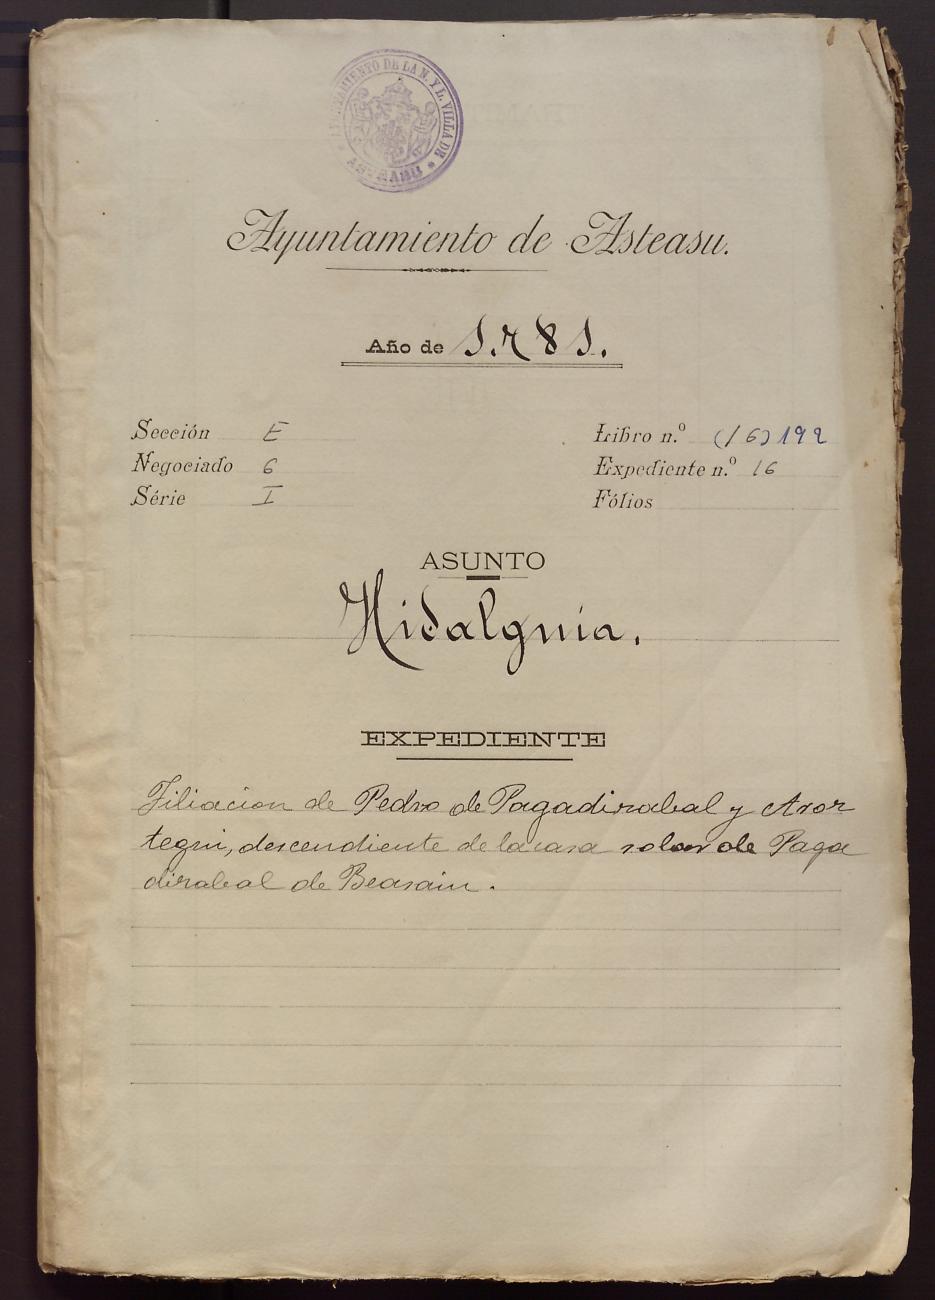 AYUNTAMIENTO DE LA N. Y L. VILLA DE
Ayuntamiento de Asteasu.
Año de 1.781.
Sección E
Negociado 6
Série I
Libro n.º (16) 192
Expediente n.º 16
Fólios
ASUNTO
Hidalguia.
EXPEDIENTE
Filiacion de Pedro de Pagadizabal y Aror
tegui, descendiente de la casa solar de Paga
dizabal de Beasain.